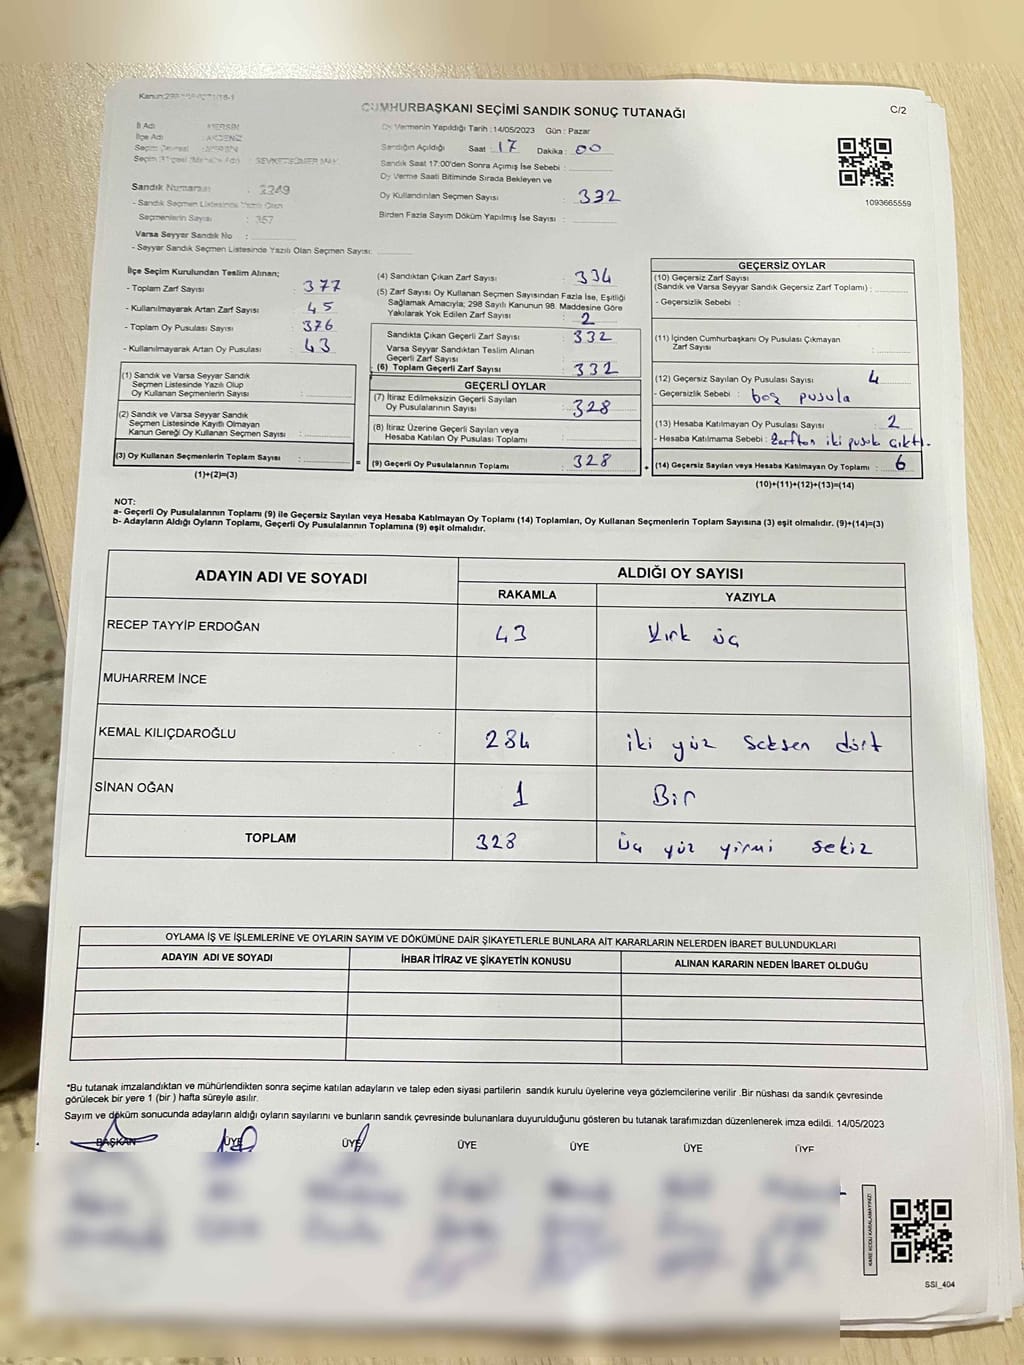 CUMHURBAŞKANI SEÇİMİ SANDIK SONUÇ TUTANAĞI
C/2
İl Adı : MERSİN
İlçe Adı : AKDENİZ
Seçim Çevresi : MERSİN
Sandık Numarası : 2249
- Sandık Seçmen Listesinde Yazılı Olan
Seçmenlerin Sayısı : 357
Varsa Seyyar Sandık No :
- Seyyar Sandık Seçmen Listesinde Yazılı Olan Seçmen Sayısı:
Oy Vermenin Yapıldığı Tarih :14/05/2023 Gün : Pazar
Sandığın Açıldığı Saat : 17 Dakika : 00
Sandık Saat 17:00'den Sonra Açımış İse Sebebi :
Oy Verme Saati Bitiminde Sırada Bekleyen ve
Oy Kullandırılan Seçmen Sayısı : 332
Birden Fazla Sayım Döküm Yapılmış İse Sayısı :
1093665559
İlçe Seçim Kurulundan Teslim Alınan;
- Toplam Zarf Sayısı : 377
- Kullanılmayarak Artan Zarf Sayısı : 45
- Toplam Oy Pusulası Sayısı : 376
- Kullanılmayarak Artan Oy Pusulası : 43
(1) Sandık ve Varsa Seyyar Sandık
Seçmen Listesinde Yazılı Olup
Oy Kullanan Seçmenlerin Sayısı :
(2) Sandık ve Varsa Seyyar Sandık
Seçmen Listesinde Kayıtlı Olmayan
Kanun Gereği Oy Kullanan Seçmen Sayısı :
(3) Oy Kullanan Seçmenlerin Toplam Sayısı :
(1)+(2)=(3)
(4) Sandıktan Çıkan Zarf Sayısı : 334
(5) Zarf Sayısı Oy Kullanan Seçmen Sayısından Fazla İse, Eşitliği
Sağlamak Amacıyla; 298 Sayılı Kanunun 98. Maddesine Göre
Yakılarak Yok Edilen Zarf Sayısı : 2
Sandıkta Çıkan Geçerli Zarf Sayısı : 332
Varsa Seyyar Sandıktan Teslim Alınan
Geçerli Zarf Sayısı :
(6) Toplam Geçerli Zarf Sayısı : 332
GEÇERLİ OYLAR
(7) İtiraz Edilmeksizin Geçerli Sayılan
Oy Pusulalarının Sayısı : 328
(8) İtiraz Üzerine Geçerli Sayılan veya
Hesaba Katılan Oy Pusulası Toplamı :
= (9) Geçerli Oy Pusulalarının Toplamı : 328
GEÇERSİZ OYLAR
(10) Geçersiz Zarf Sayısı
(Sandık ve Varsa Seyyar Sandık Geçersiz Zarf Toplamı) :
- Geçersizlik Sebebi :
(11) İçinden Cumhurbaşkanı Oy Pusulası Çıkmayan
Zarf Sayısı :
(12) Geçersiz Sayılan Oy Pusulası Sayısı : 4
- Geçersizlik Sebebi : boş pusula
(13) Hesaba Katılmayan Oy Pusulası Sayısı : 2
- Hesaba Katılmama Sebebi : Zarftan iki pusula çıktı.
+ (14) Geçersiz Sayılan veya Hesaba Katılmayan Oy Toplamı : 6
(10)+(11)+(12)+(13)=(14)
NOT:
a- Geçerli Oy Pusulalarının Toplamı (9) ile Geçersiz Sayılan veya Hesaba Katılmayan Oy Toplamı (14) Toplamları, Oy Kullanan Seçmenlerin Toplam Sayısına (3) eşit olmalıdır. (9)+(14)=(3)
b- Adayların Aldığı Oyların Toplamı, Geçerli Oy Pusulalarının Toplamına (9) eşit olmalıdır.
ADAYIN ADI VE SOYADI ALDIĞI OY SAYISI
RAKAMLA YAZIYLA
RECEP TAYYİP ERDOĞAN 43 Kırk üç
MUHARREM İNCE
KEMAL KILIÇDAROĞLU 284 iki yüz seksen dört
SİNAN OĞAN 1 Bir
TOPLAM 328 üç yüz yirmi sekiz
OYLAMA İŞ VE İŞLEMLERİNE VE OYLARIN SAYIM VE DÖKÜMÜNE DAİR ŞİKAYETLERLE BUNLARA AİT KARARLARIN NELERDEN İBARET BULUNDUKLARI
ADAYIN ADI VE SOYADI İHBAR İTİRAZ VE ŞİKAYETİN KONUSU ALINAN KARARIN NEDEN İBARET OLDUĞU
*Bu tutanak imzalandıktan ve mühürlendikten sonra seçime katılan adayların ve talep eden siyasi partilerin sandık kurulu üyelerine veya gözlemcilerine verilir .Bir nüshası da sandık çevresinde
görülecek bir yere 1 (bir ) hafta süreyle asılır.
Sayım ve döküm sonucunda adayların aldığı oyların sayılarını ve bunların sandık çevresinde bulunanlara duyurulduğunu gösteren bu tutanak tarafımızdan düzenlenerek imza edildi. 14/05/2023
BAŞKAN ÜYE ÜYE ÜYE ÜYE ÜYE ÜYE
KARE KODU KARALAMAYINIZ!
SSI_404